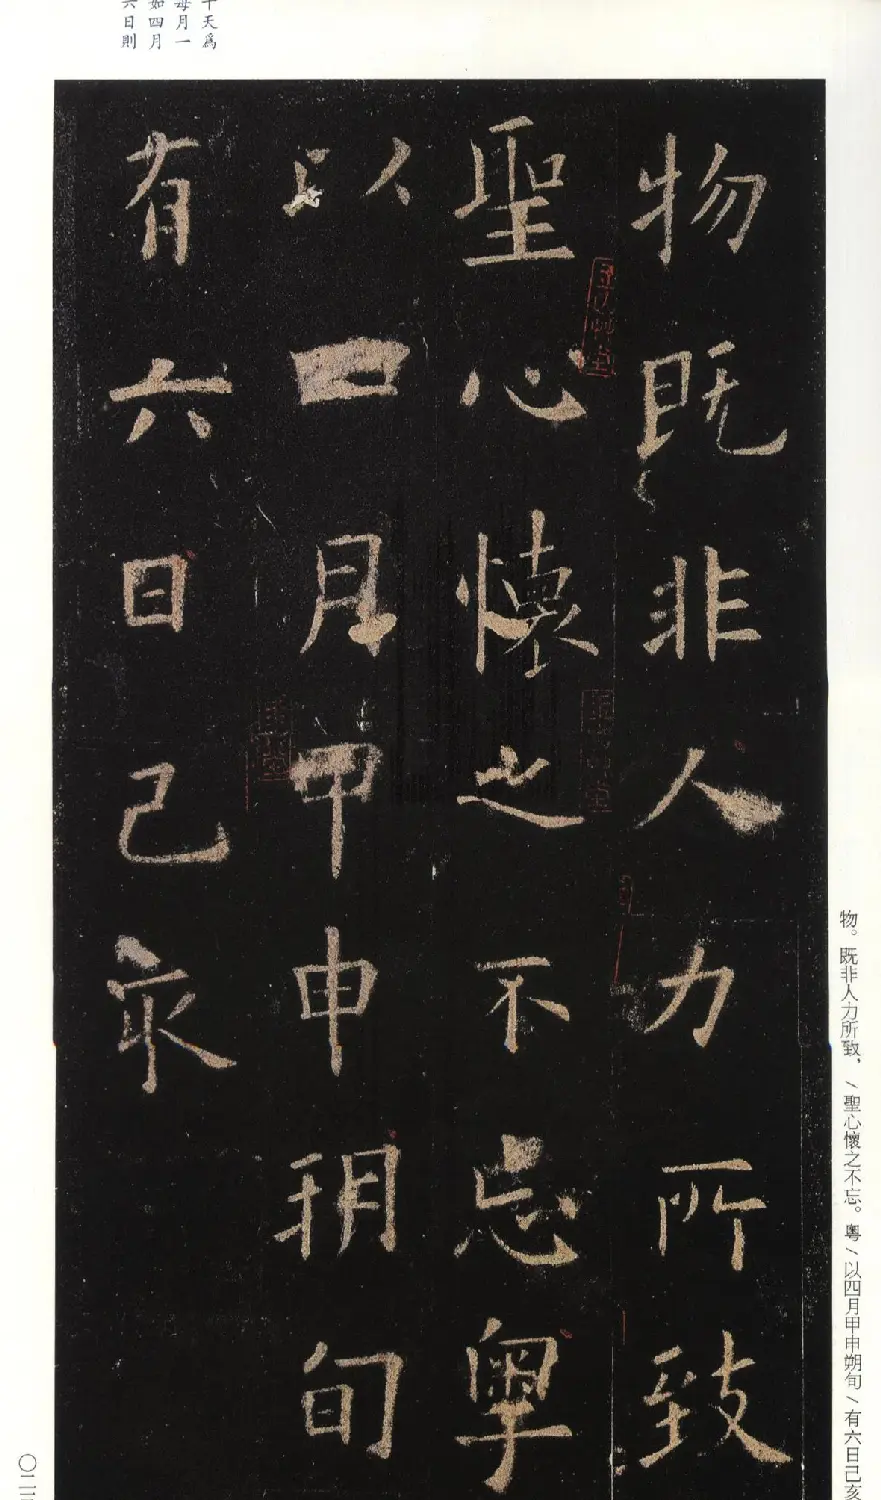 物既非人力所致
聖心懷之不忘粤
以四月甲申朔旬
有六日己亥
物。既非人力所致，/聖心懷之不忘。粤/以四月甲申朔旬/有六日己亥
十天爲
每月一
如四月
六日則